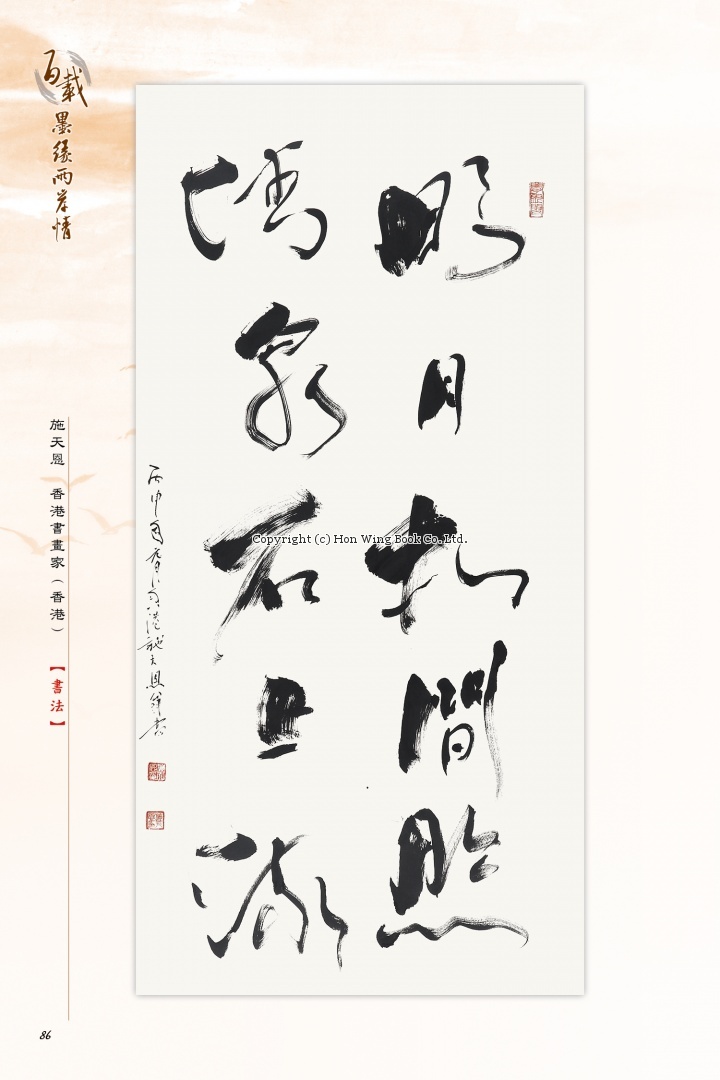 百載
墨緣兩岸情
明月松間照
清泉石上流
丙申年 香港施天恩 書
施天恩 香港書畫家（香港）
【書法】
Copyright (c) Hon Wing Book Co. Ltd.
86